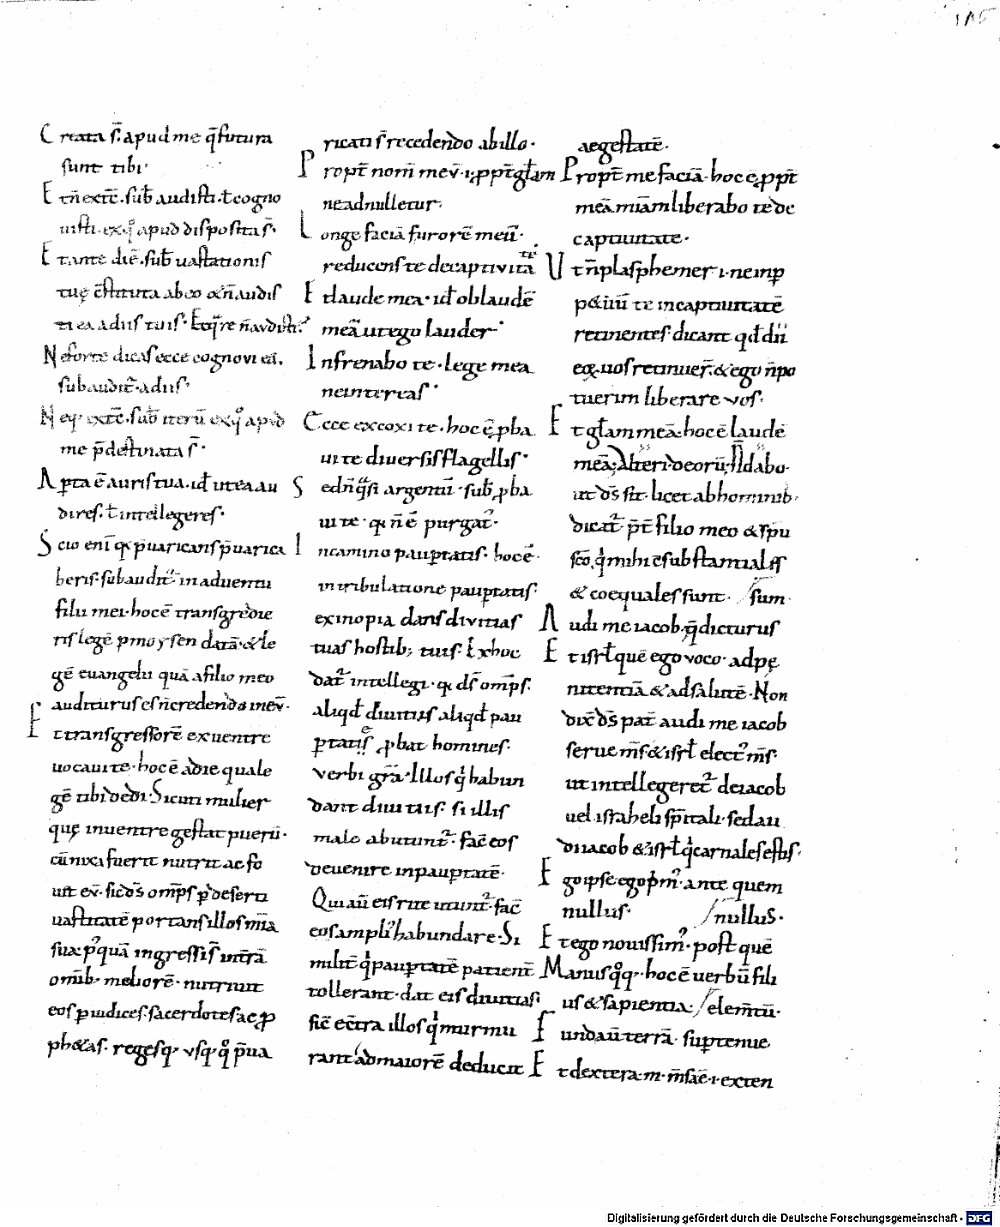 115
Creata s̄. apud me q̄ futura
sunt tibi·
Et n̄ ex tē. sub̄ audisti. t̄ cogno
uisti. ex q̊ apud disposita s̄·
Et ante diē. sub̄ uastationis
tuę c̄stituta ab eo & n̄ audis
ti ea
Ne forte dicas ecce cognovi ea.
subaudit̄·
Neq· ex tc̄. sub̄ iterū ex q̊ apud
me p̄destinata s̄·
Apta ē auris tua. id̄ ut ea au
dires. t̄ intellegeres·
Scio eni q p̄uaricans p̄uarica
beris· subaudit̄ in aduentu
filii mei· hoc ē transgredie
ris legē p moysen datā· & le
gē euangelii quā a filio meo
auditurus es n̄ credendo in ev̄·
Et transgressorē ex uentre
uocaui te· hoc ē a die qua le
gē tibi dedi· Sicuti mulier
quę in uentre gestat puerū·
cū nixa fuerit nutrit ac fo
uit ev̄· sic d̄s om̄ps p̄ deserti
uastitatē portans illos m̄ia
sua p̊quā ingressis̄ int̄rā
omib· meliorē· nutriuit
eos p iudices· sacerdotes ac p
ph&as· regesq· usq· q̊ p̄ua
ricati s̄ recedendo ab illo·
Propt̄ nom̄ mev̄·i· ppt̄ gl̄am
ne adnulletur·
Longe faciā furorē meū·
reducens te de captivita
te
Et laude mea· id̄ ob laudē
meā ut ego lauder·
Infrenabo te· lege mea
ne intereas·
Ecce excoxi te· hoc ē pba
ui te diversis flagellis·
Sed n̄ q̄si argentū· sub̄ pba
ui te· q n̄ ē purgat̄·
In camino paupertatis· hoc ē·
in tribulatione paupertatis·
ex inopia dans divitias
tuas hostib; tuis· Ex hoc
dat̄ intellegi· q d̄s om̄ps·
aliqd̄ divitiis aliqd̄ pau
ptatis pbat homines·
verbi gr̄a· Illos q̇ habun
dant divitiis· si illis
male abutunt̄· fac̄ eos
devenire in paupertatē·
Qui aū eis rite utunt̄· fac̄
eos ampli habundare· Si
milit̄ q̇ paupertatē patient̄
tollerant· dat eis divitias·
sic̄ ec̄tra illos q̇ murmu
rant ad maiorē deducit
aegestatē·
Propt̄ me faciā· hoc ē ppt̄
meā miām liberabo te de
captiuitate·
Ut n̄ plasphemer·i· ne imp
p&uū te in captiuitatē
retinentes· dicant qd̄ dii
eoꝝ uos retinuer̄· & ego n̄ po
tuerim liberare vos·
Et gl̄am meā· hoc ē laudē
meā· Alteri deorū n̄ dabo·
ut d̄s sit· licet ab hominib·
dicat̄ p̄t filio meo & spu
sc̄o· q̇ mihi c̄substantiales
& coequales sunt· sum·
Audi me iacob· q̄ dicturus
Et isrl̄ quē ego voco· ad pę
nitentiā & ad salutē· Non
dix̄ d̄s pat̄ audi me iacob
serue m̄s & isrl̄ elect̄ m̄s·
ut intelleger&̄ de iacob
uel israheli sp̄itali· sed au
di iacob & isrl̄ q̇ carnales estis·
Ego ipse· ego pm̄· ante quem
nullus· nullus·
Et ego nouissim̄· post quē
Manus q̊q· hoc ē uerbū fili
us & sapientia· elem̄tū·
Fundaū terrā· suptenue
Et dextera· m· m̄sāe·i· exten
Digitalisierung gefördert durch die Deutsche Forschungsgemeinschaft - DFG